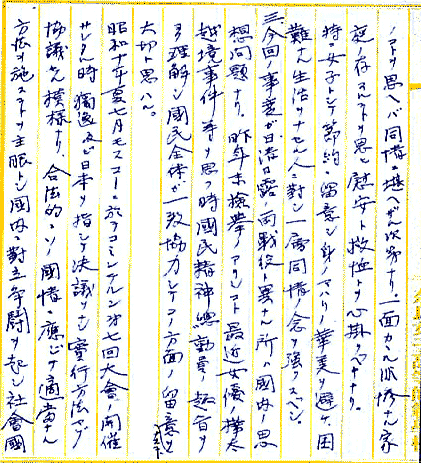 ノアルヲ思ヘバ同情ニ堪ヘザル次第ナリ。一面カヽル悲惨ナル家
庭ノ存スルヲ思ヒ慰安ト救恤トヲ心掛クベキナリ。
特ニ女子トシテ節約ニ留意シ身ノマハリノ華美ヲ避ケ、困
難ナル生活ヲナセル人ニ対シ一層同情ノ念ヲ強クスベシ。
三、今回ノ事変ガ日清日露ノ両戦役ト異ナル所ハ国内ノ思
想問題ナリ。昨年末検挙ノアリシコト最近女優ノ樺太
越境事件等ヲ思フ時国民精神総動員ノ趣旨ヲ
ヨク理解シ国民全体ガ一致協力シテコノ方面ニ留意スルコト
大切ト思ハル。
昭和十年夏七月モスコーニ於テコミンテルン第七回大会ノ開催
サレタル時独逸及ビ日本ヲ指シテ決議ヲナシ実行方法マデ
協議シタ模様ナリ。合法的ニソノ国情ニ応ジテ適当ナル
方法ヲ施スコトヲ主眼トシ国内ニ対立争闘ヲ起シ社会国